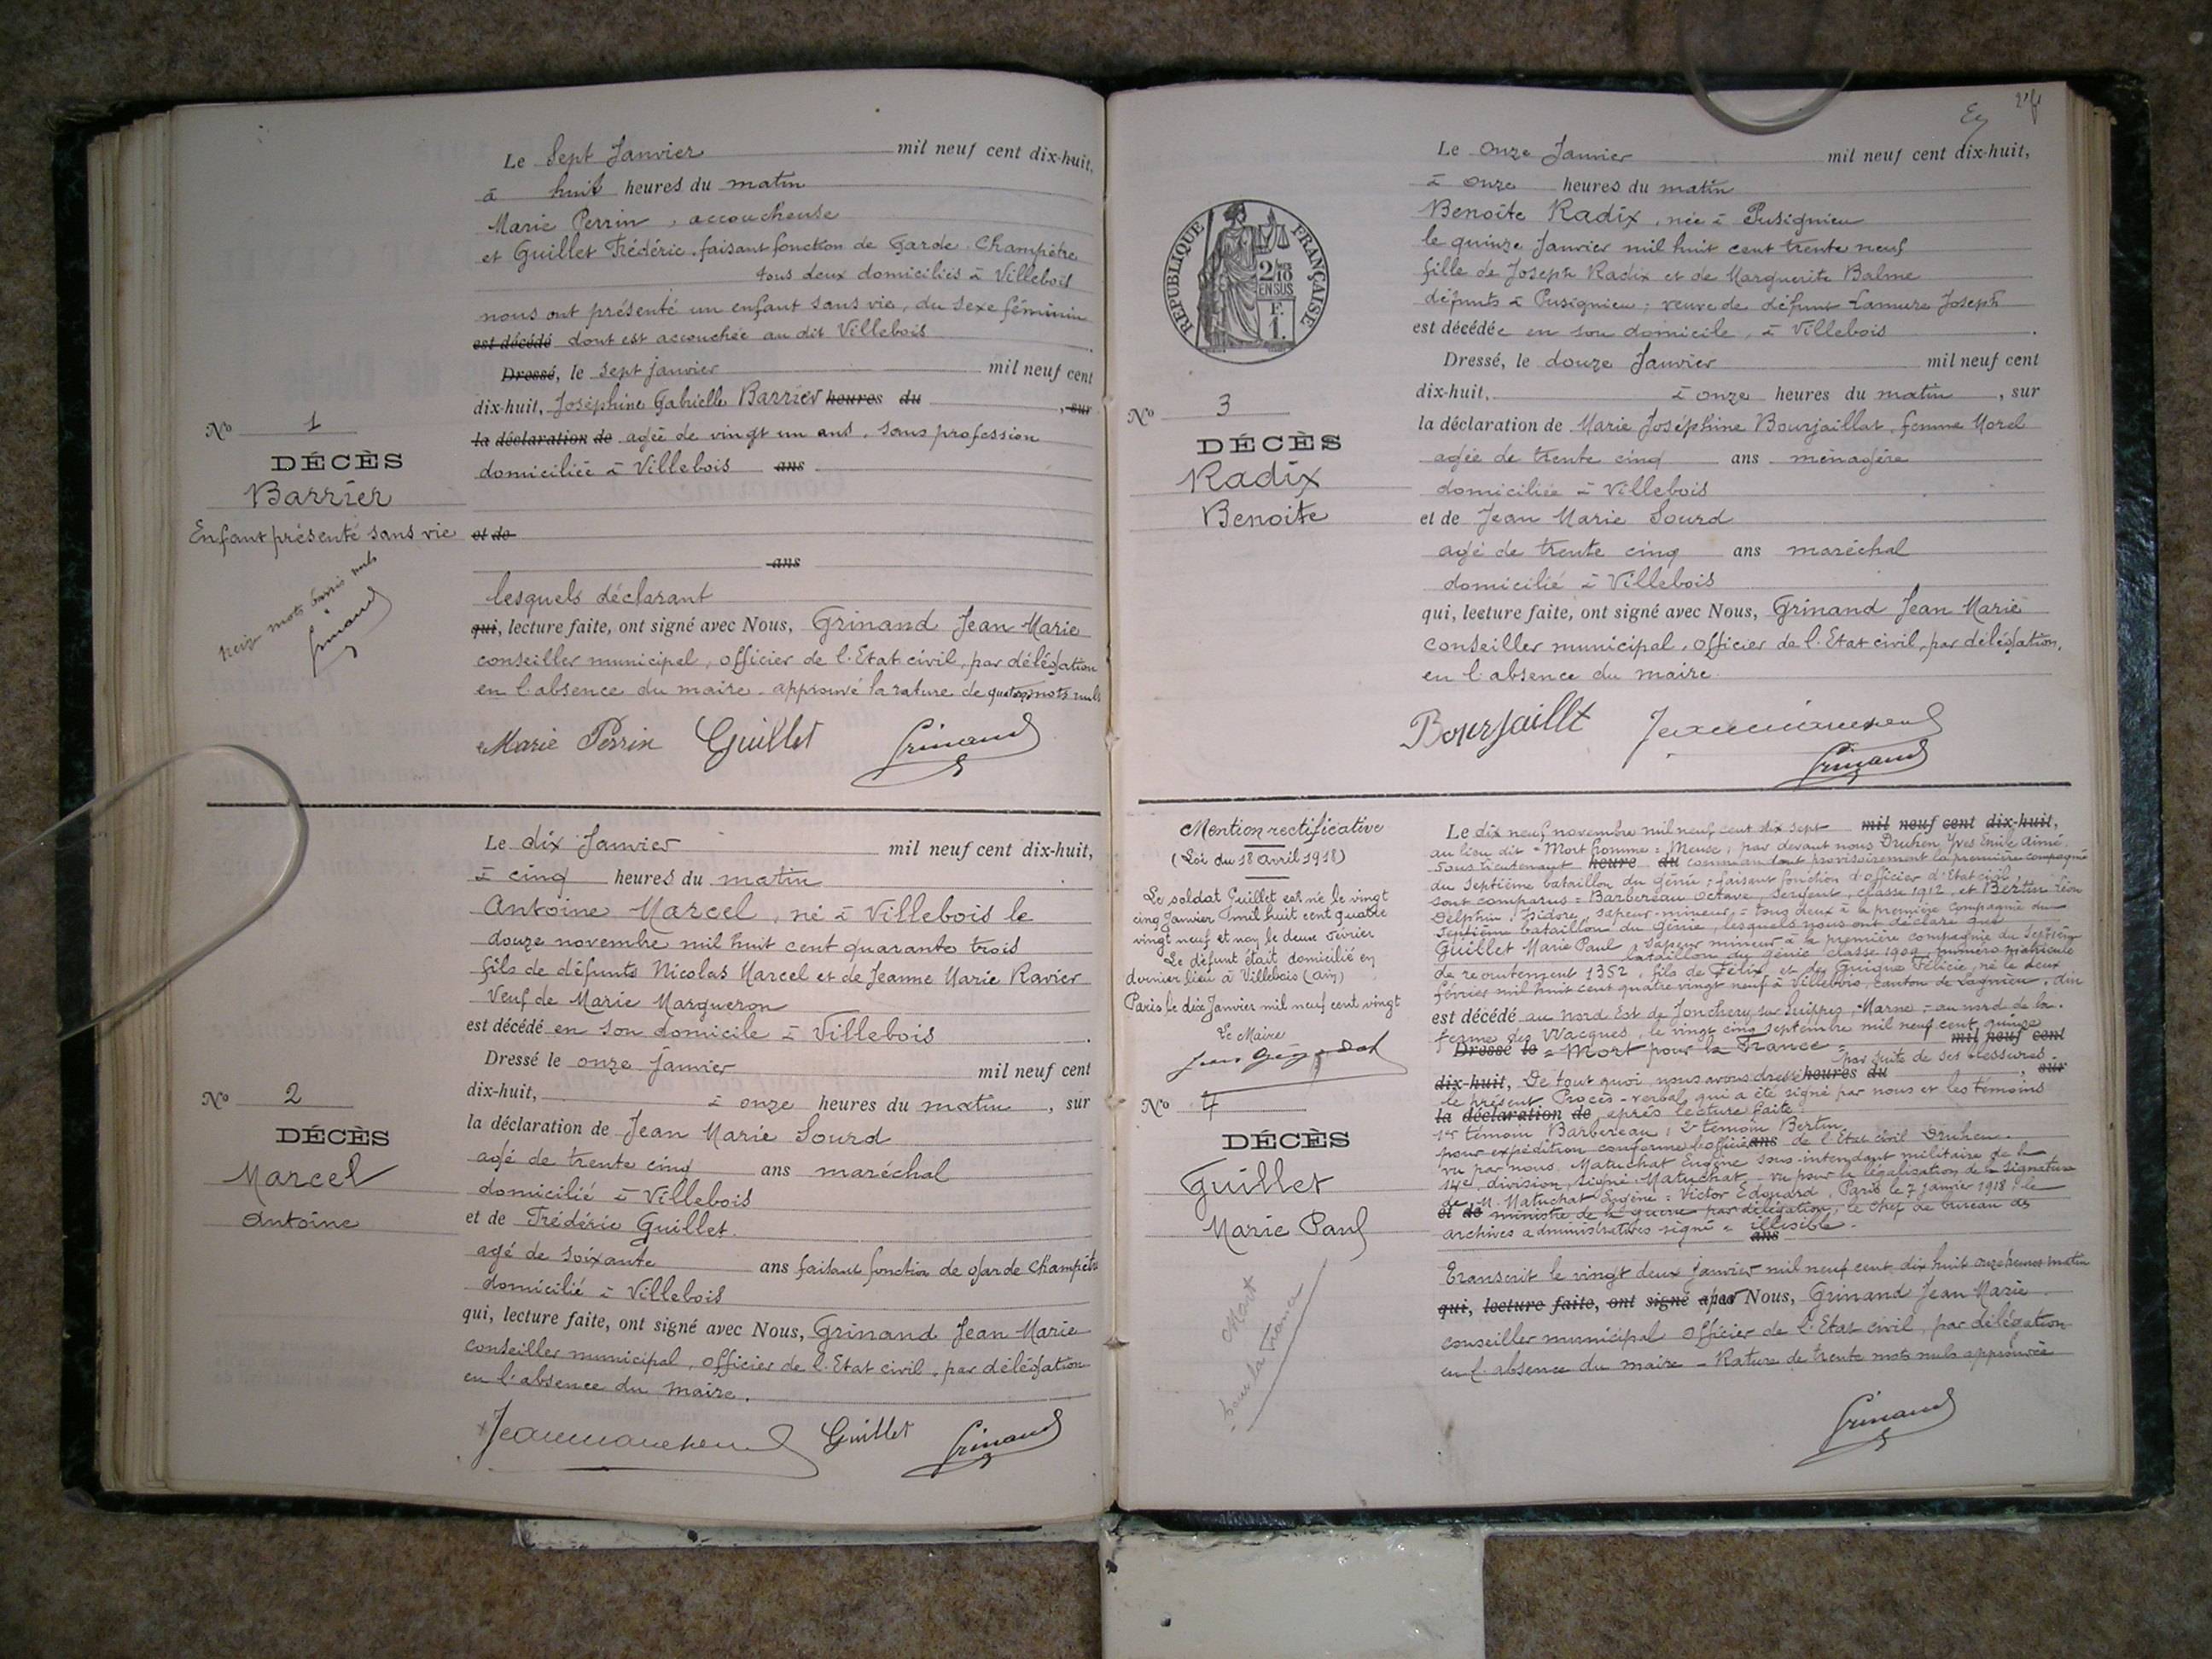 Le Sept Janvier mil neuf cent dix-huit,
à huit heures du matin
Marie Perrin, accoucheuse
et Guillet Frédéric, faisant fonction de Garde Champêtre
tous deux domiciliés à Villebois
nous ont présenté un enfant sans vie, du sexe féminin
est décédé dont est accouchée au dit Villebois.
Dressé, le sept janvier mil neuf cent
dix-huit, Joséphine Gabrielle Barrier heures du, sur
la déclaration de agée de vingt un ans, sans profession
domiciliée à Villebois ans
et de
ans
lesquels déclarant
qui, lecture faite, ont signé avec Nous, Grinand Jean-Marie
conseiller municipal, officier de l'Etat civil, par délégation
en l'absence du maire - approuvé la rature de mots nuls
Marie Perrin Guillet Grinand
No 1
DÉCÈS
Barrier
Enfant présenté sans vie
mots nuls
Grinand
Le dix Janvier mil neuf cent dix-huit,
à cinq heures du matin
Antoine Marcel, né à Villebois le
douze novembre mil huit cent quarante trois
fils de défunts Nicolas Marcel et de Jeanne Marie Ravier
Veuf de Marie Margueron
est décédé en son domicile à Villebois.
Dressé le onze janvier mil neuf cent
dix-huit, à onze heures du matin, sur
la déclaration de Jean Marie Sourd
agé de trente cinq ans maréchal
domicilié à Villebois
et de Frédéric Guillet.
agé de soixante ans faisant fonction de garde Champêtre
domicilié à Villebois
qui, lecture faite, ont signé avec Nous, Grinand Jean Marie
conseiller municipal, officier de l'Etat civil, par délégation
en l'absence du maire.
Guillet Grinand
No 2
DÉCÈS
Marcel
Antoine
RÉPUBLIQUE FRANÇAISE
2/10
EN SUS
F.
1.
Le Onze Janvier mil neuf cent dix-huit,
à onze heures du matin
Benoîte Radix, née à Pusignieu
le quinze Janvier mil huit cent trente neuf
fille de Joseph Radix et de Marguerite Balme
défunts à Pusignieu; veuve de défunt Lamure Joseph
est décédée en son domicile, à Villebois.
Dressé, le douze Janvier mil neuf cent
dix-huit, à onze heures du matin, sur
la déclaration de Marie Joséphine Bourjaillat, femme Morel
agée de trente cinq ans ménagère
domiciliée à Villebois
et de Jean Marie Sourd
agé de trente cinq ans maréchal
domicilié à Villebois
qui, lecture faite, ont signé avec Nous, Grinand Jean Marie
conseiller municipal, officier de l'Etat civil, par délégation,
en l'absence du maire.
Bourjaillt
Grinand
No 3
DÉCÈS
Radix
Benoite
Mention rectificative
(Loi du 18 avril 1918)
Le soldat Guillet est né le vingt
cinq Janvier mil huit cent quatre
vingt neuf et non le deux Février
Le défunt était domicilié en
dernier lieu à Villebois (Ain)
Paris le dix Janvier mil neuf cent vingt
Le Maire
No 4
DÉCÈS
Guillet
Marie Paul
Mort
pour la France
Le dix neuf novembre mil neuf cent dix sept mil neuf cent dix-huit,
au lieu dit "Mort homme" Meuse, par devant nous Druhen, Yves Emile Aimé,
Sous lieutenant heure du commandant provisoirement la première compagnie
du septième bataillon du génie; faisant fonction d'officier d'Etat civil,
sont comparus = Barbereau Octave, sergent, classe 1912, et Bertin Léon
Delphin, Isidore, sapeur-mineur, = tous deux à la première compagnie du
septième bataillon du génie, lesquels nous ont déclaré que
Guillet Marie Paul, sapeur mineur à la première compagnie du septième
bataillon du génie classe 1909, numéro matricule
de recrutement 1352, fils de Félix et de Guigue Félicie, né le deux
février mil huit cent quatre vingt neuf à Villebois, canton de Lagnieu, Ain
est décédé au Nord Est de Jonchery sur Suippes, Marne = au nord de la
ferme des Wacques, le vingt cinq septembre mil neuf cent quinze
Dressé le = Mort pour la France = mil neuf cent
par suite de ses blessures
dix-huit, De tout quoi nous avons dressé heures du, sur
le présent Procès-verbal qui a été signé par nous et les témoins
la déclaration de après lecture faite
1er témoin Barbereau; 2e témoin Bertin
pour expédition conforme l'officier ans de l'Etat civil Druhen.
vu par nous Matuchat Eugène sous-intendant militaire de la
14e division, signé Matuchat - vu pour la légalisation de la signature
de M. Matuchat Eugène = Victor Edouard, Paris le 7 janvier 1918 = le
et de ministre de la guerre par délégation, le chef de bureau des
archives administratives signé = illisible.
ans
Transcrit le vingt deux janvier mil neuf cent dix huit onze heures matin
qui, lecture faite, ont signé avec par Nous, Grinand Jean Marie
conseiller municipal officier de l'Etat civil, par délégation
en l'absence du maire - Rature de trente mots nuls approuvée
Grinand